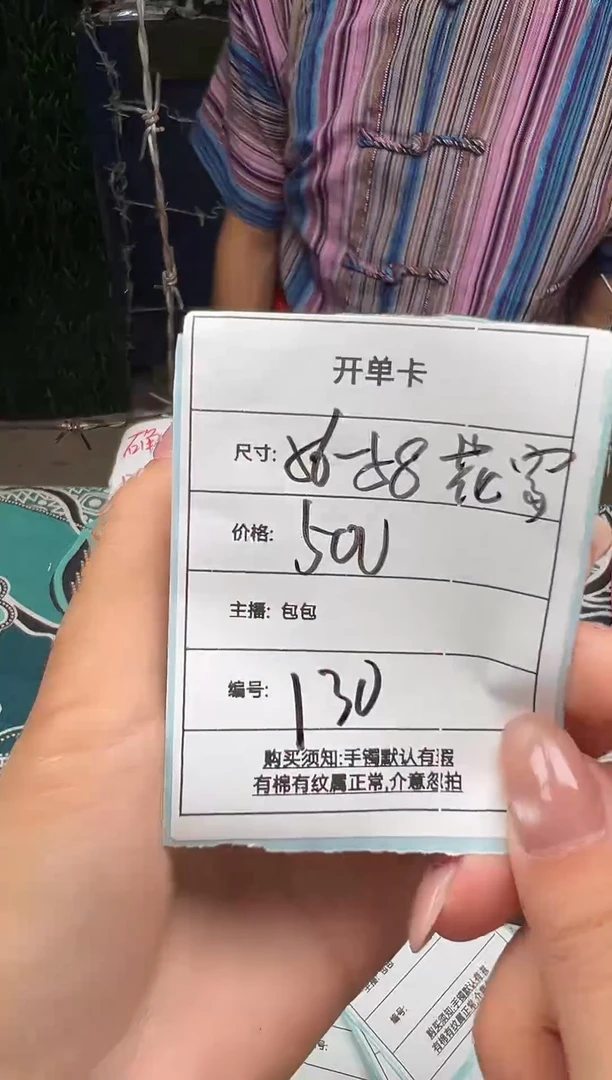 开单卡
尺寸: 56-58 花雪
价格: 500
主播: 包包
编号: 130
购买须知:手镯默认有瑕
有棉有纹属正常,介意忽拍
主播: 包包
编号:
购买须知:手镯默认有瑕
有棉有纹属正常,介意